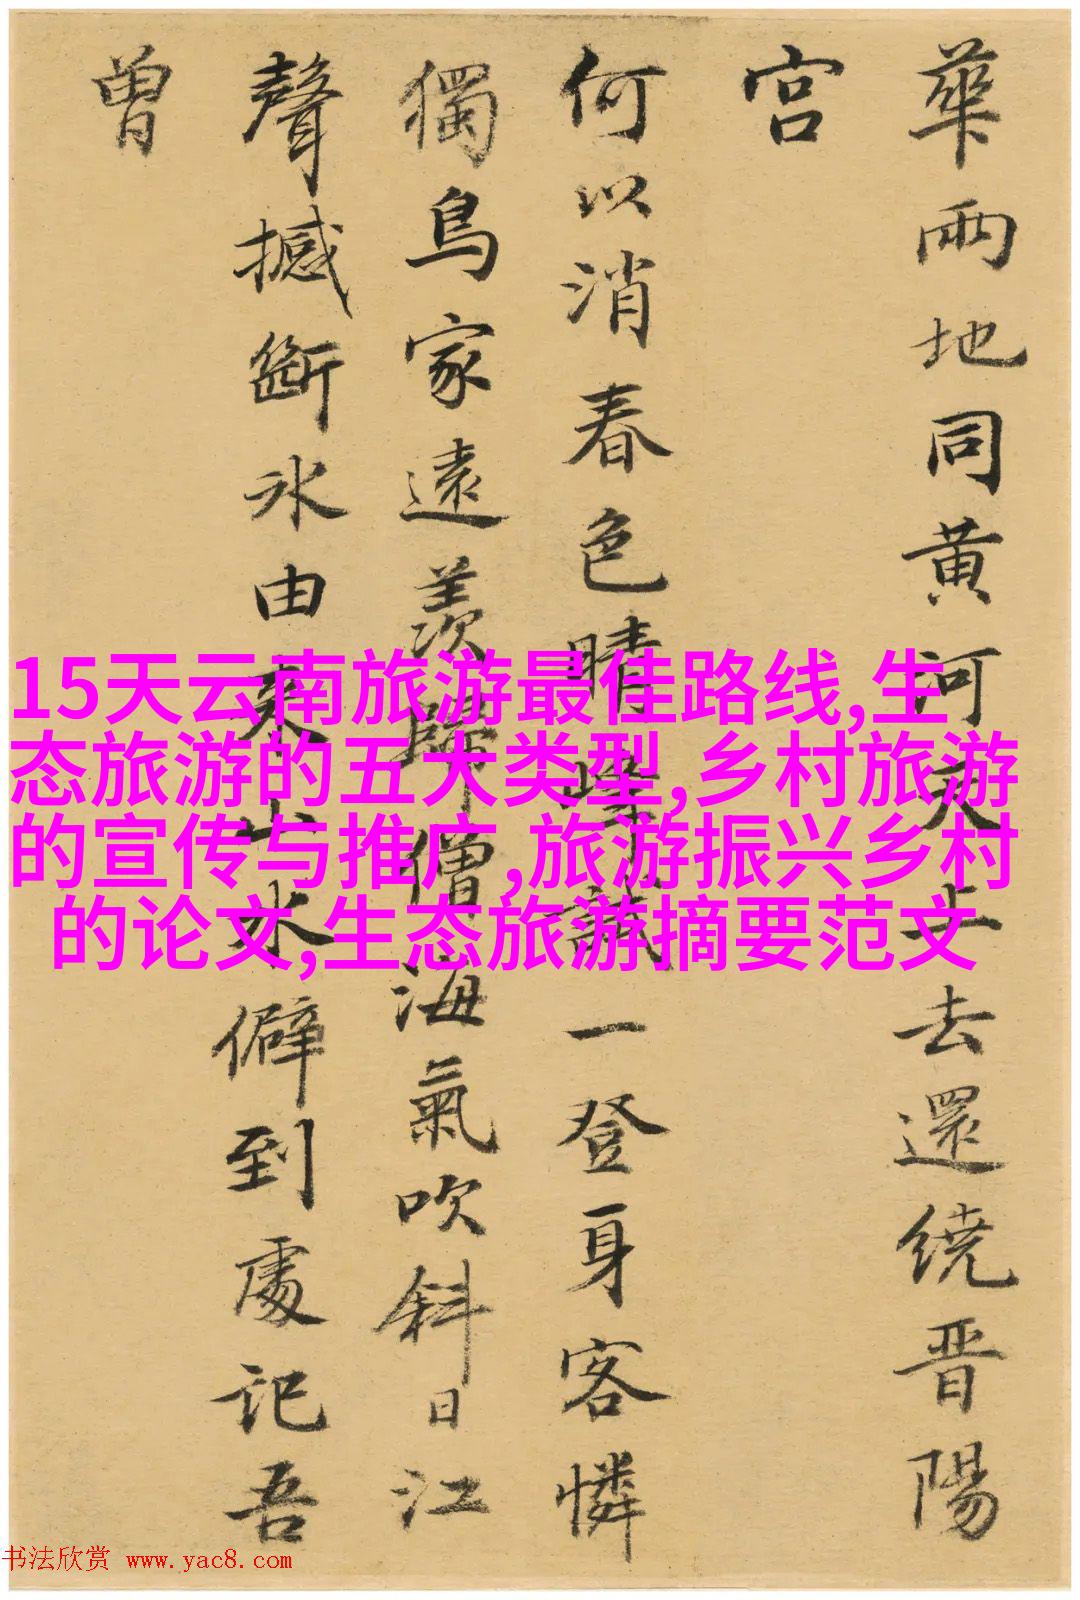 華兩地同黄河天上去還繞晋陽
宫
何以消春色晴峰試一登身客憐
獨鳥家遠羨歸僧海氣吹斜日江
聲撼斷冰由来山水僻到處記吾
曾
15天云南旅游最佳路线,生
态旅游的五大类型,乡村旅游
的宣传与推广,旅游振兴乡村
的论文,生态旅游摘要范文
书法欣赏 www.yac8.com